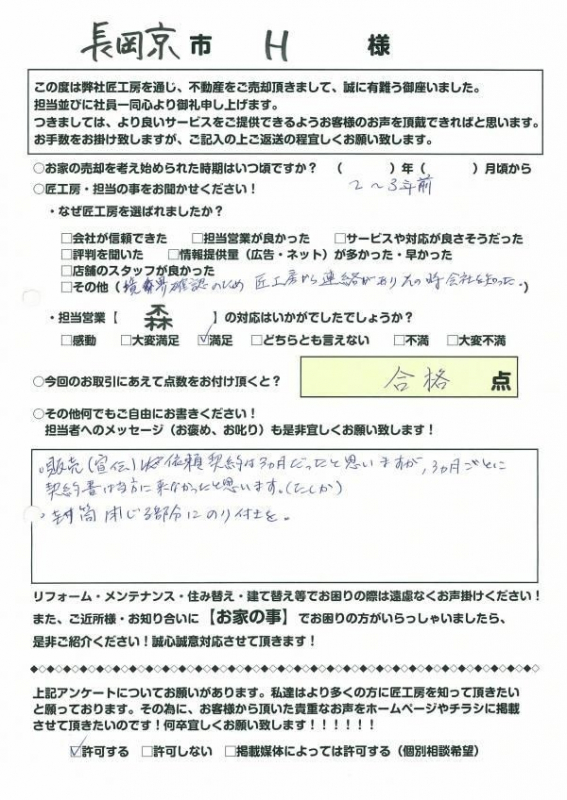 長岡京市 H 様
この度は弊社匠工房を通じ、不動産をご売却頂きまして、誠に有難う御座いました。
担当並びに社員一同心より御礼申し上げます。
つきましては、より良いサービスをご提供できるようお客様のお声を頂戴できればと思います。
お手数をお掛け致しますが、ご記入の上ご返送の程宜しくお願い致します。
○お家の売却を考え始められた時期はいつ頃ですか？ （ ）年（ ）月頃から
2〜3年前
○匠工房・担当の事をお聞かせください！
・なぜ匠工房を選ばれましたか？
□会社が信頼できた □担当営業が良かった □サービスや対応が良さそうだった
□評判を聞いた □情報提供量（広告・ネット）が多かった・早かった
□店舗のスタッフが良かった
□その他（境界確認のため 匠工房から連絡がありその時会社を知った。）
・担当営業【 森 】の対応はいかがでしたでしょうか？
□感動 □大変満足 ☑満足 □どちらとも言えない □不満 □大変不満
○今回のお取引にあえて点数をお付け頂くと？ 合格 点
○その他何でもご自由にお書きください！
担当者へのメッセージ（お褒め、お叱り）も是非宜しくお願い致します！
・販売（宣伝）依頼契約は3ヵ月だったと思いますが、3ヵ月ごとに
契約書は当方に来なかったと思います。（たしか）
・封筒閉じる部分にのり付けを。
リフォーム・メンテナンス・住み替え・建て替え等でお困りの際は遠慮なくお声掛けください！
また、ご近所様・お知り合いに【お家の事】でお困りの方がいらっしゃいましたら、
是非ご紹介ください！誠心誠意対応させて頂きます！
上記アンケートについてお願いがあります。私達はより多くの方に匠工房を知って頂きたい
と願っております。その為に、お客様から頂いた貴重なお声をホームページやチラシに掲載
させて頂きたいのです！何卒宜しくお願い致します！！！！！！
☑許可する □許可しない □掲載媒体によっては許可する（個別相談希望）